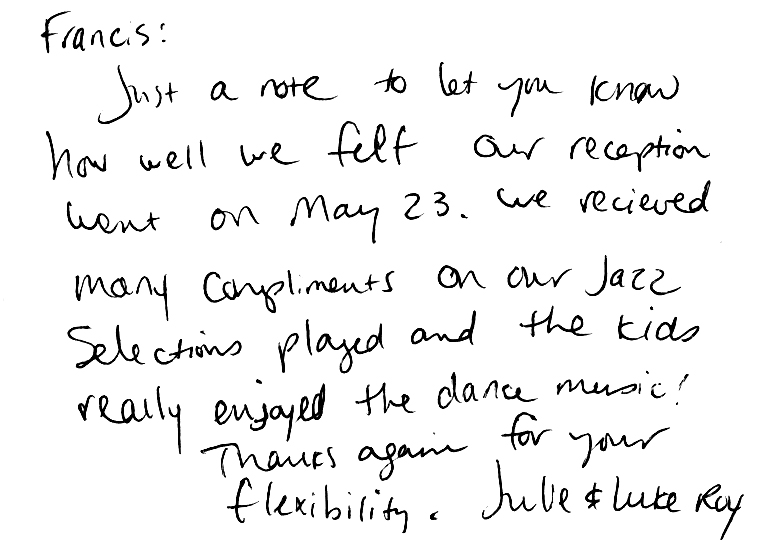 Francis:
Just a note to let you know
how well we felt our reception
went on May 23. we recieved
many compliments on our Jazz
Selections played and the kids
really enjoyed the dance music!
Thanks again for your
flexibility. Julie & Luke Roy